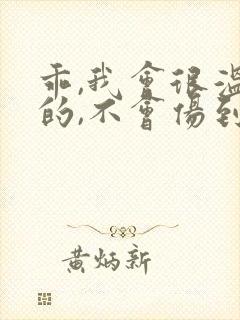 乖,我會很溫
的,不會傷到
黄炳新